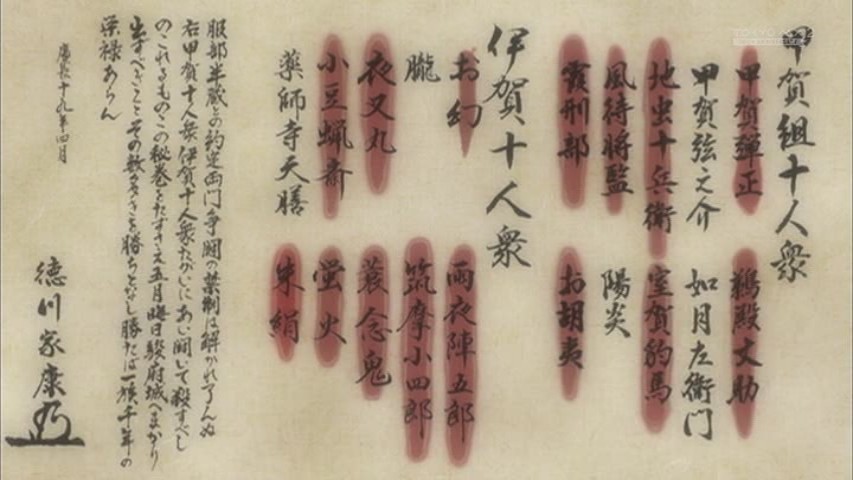 甲賀組十人衆
甲賀弾正
鵜殿丈助
甲賀弦之介
如月左衛門
地虫十兵衛
室賀豹馬
風待将監
陽炎
霞刑部
お胡夷
伊賀十人衆
お幻
雨夜陣五郎
朧
筑摩小四郎
夜叉丸
蓑念鬼
小豆蝋斎
蛍火
薬師寺天膳
朱絹
服部半蔵との約定両門争闘の禁制は解かれ了んぬ
右甲賀十人衆伊賀十人衆たがいにあい闘いて殺すべし
のこれるものこの秘巻をたずさえ五月晦日駿府城へまかり
出ずべきことその数多きを勝ちとなし勝たば一族千年の
栄禄あらん
慶長十九年四月
徳川家康
TOKYO MX